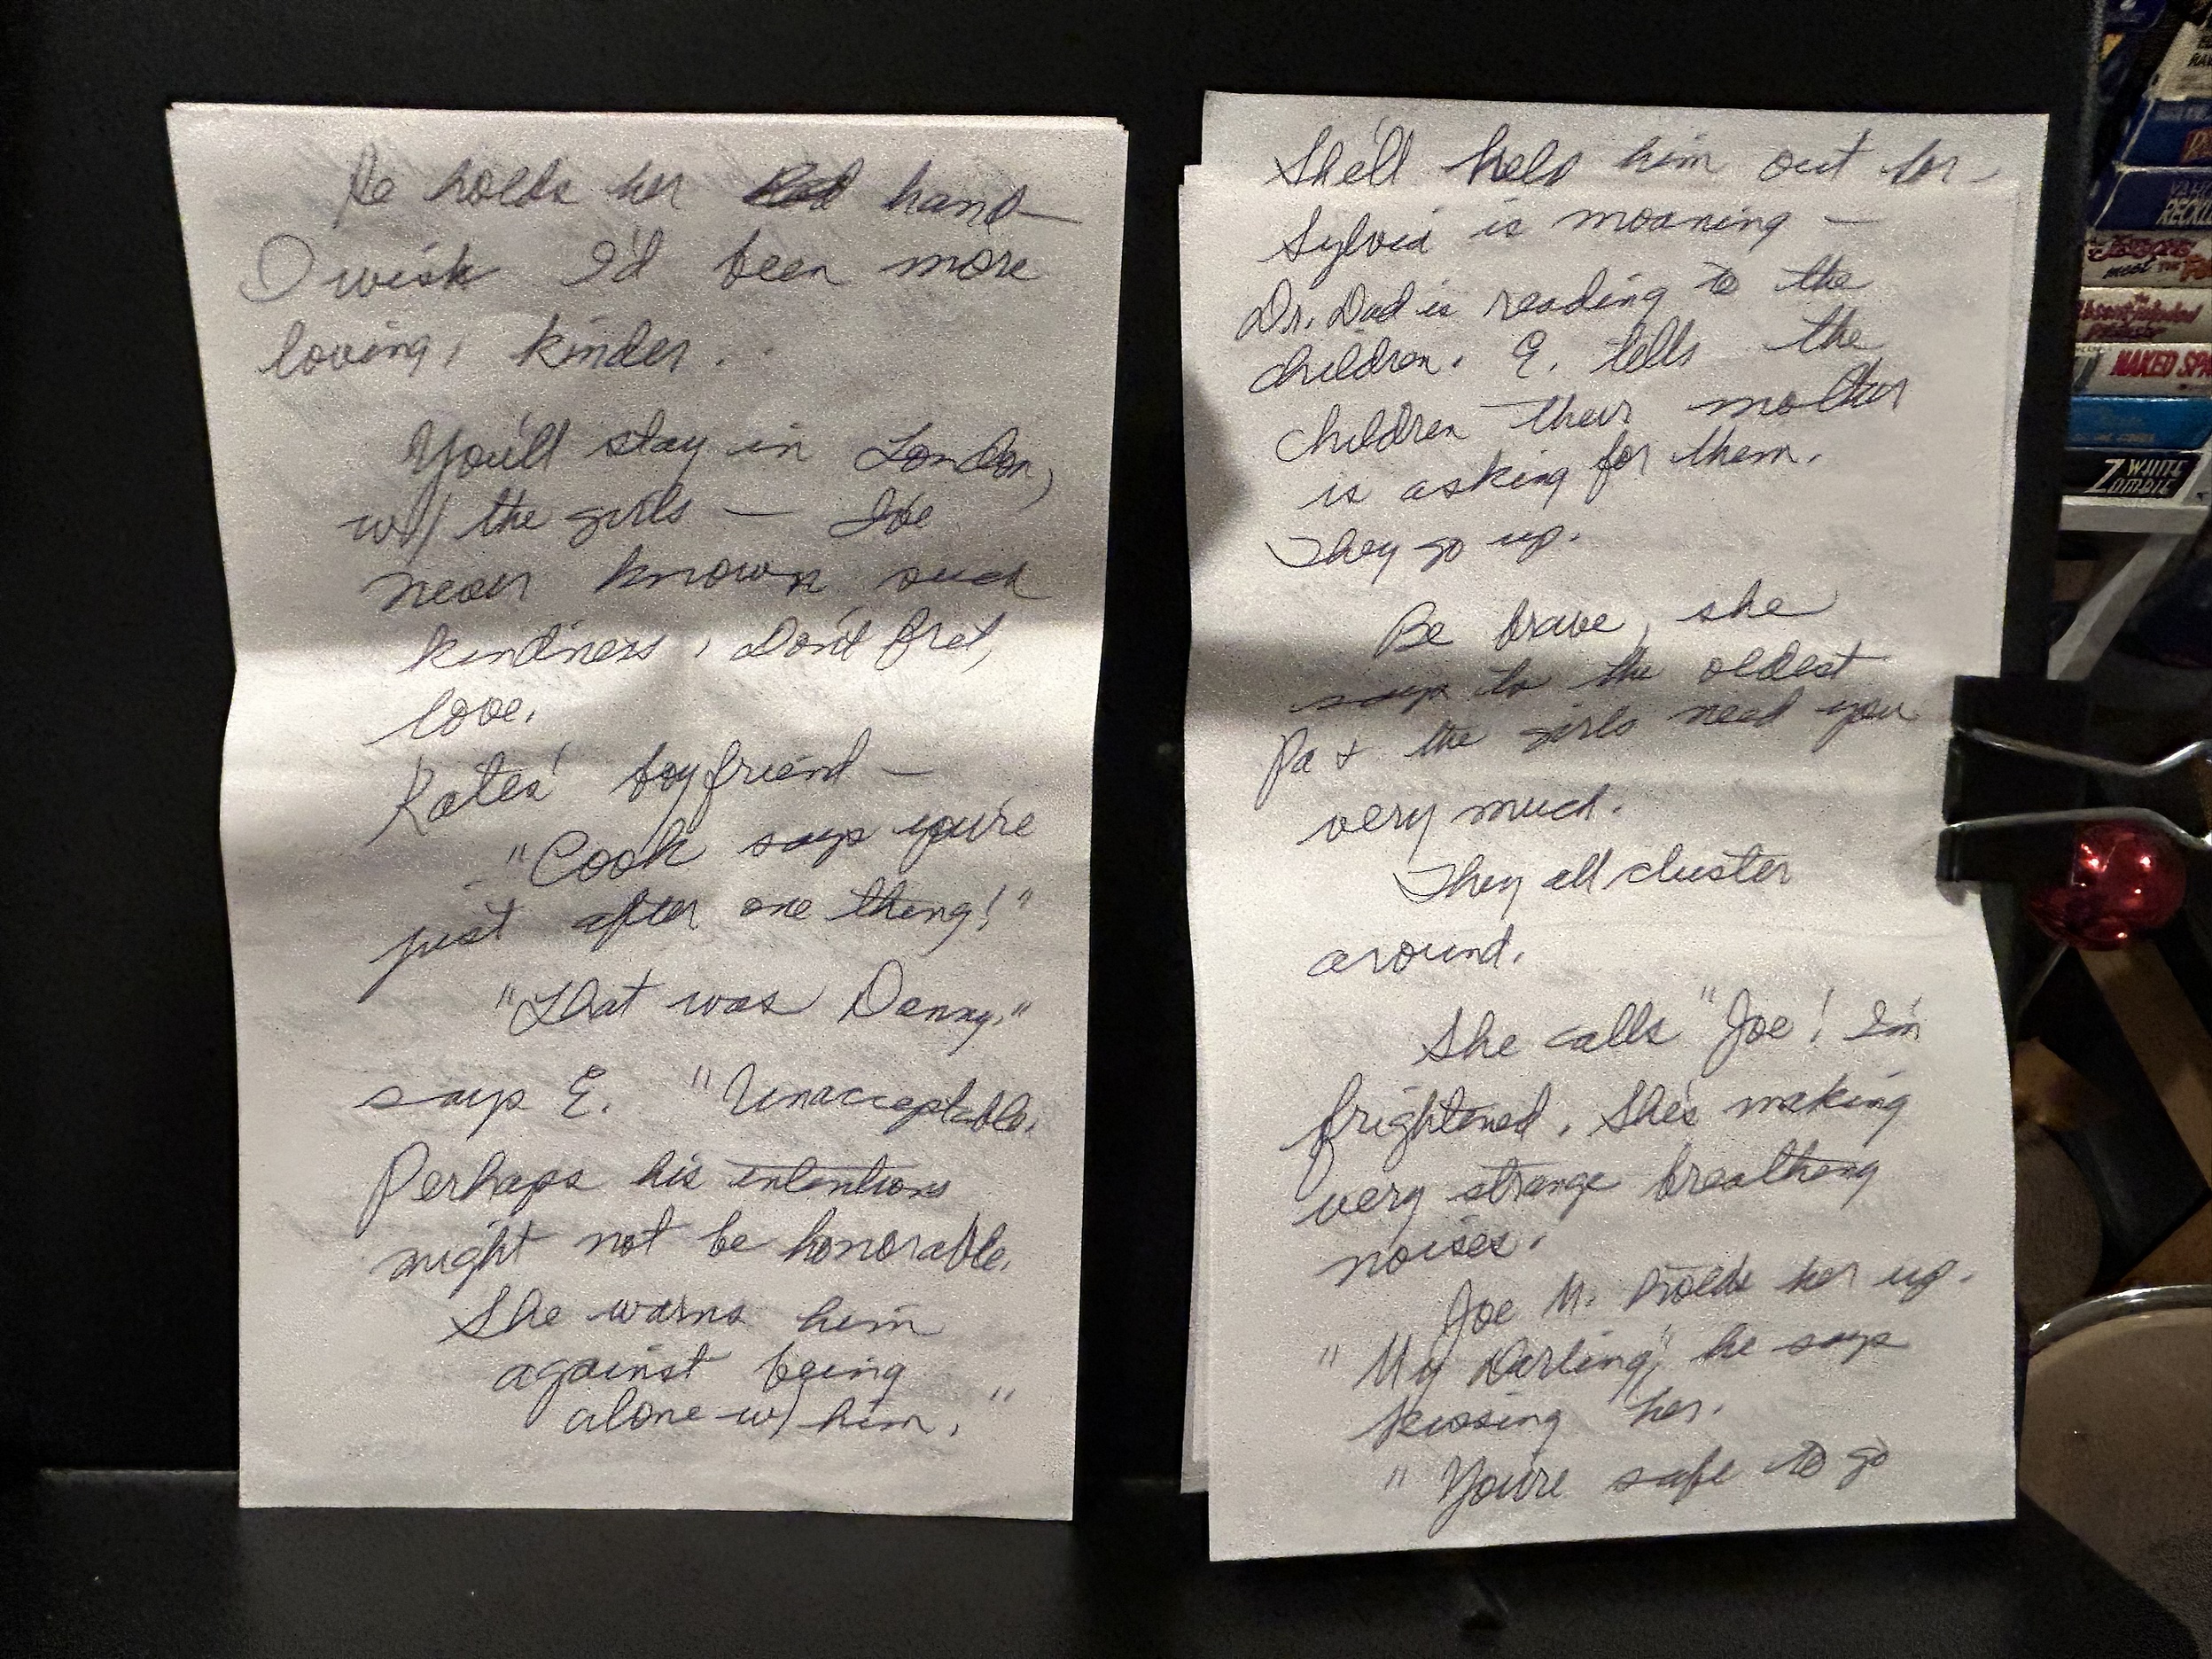 He holds her hand—
I wish I'd been more
loving, kinder.
You'll stay in London,
w/ the girls — I've
never known such
kindness, Don't fret,
love.
Kates' boyfriend —
"Cook says you're
just after one thing!"
"That was Danny."
says E. "Unacceptable.
Perhaps his intentions
might not be honorable.
She warns him
against being
alone w/ him."
She'll help him out for-
Sylvia is moaning —
Dr. Dad is reading to the
children. E. tells the
children their mother
is asking for them.
They go up.
Be brave, she
says to the oldest
Pa + the girls need you
very much.
They all cluster
around.
She calls "Joe! I'm
frightened. She's making
very strange breathing
noises.
Joe M. holds her up.
"My Darling," he says
kissing her.
"You're safe to go
meet
NAKED
WHITE
ZOMBIE